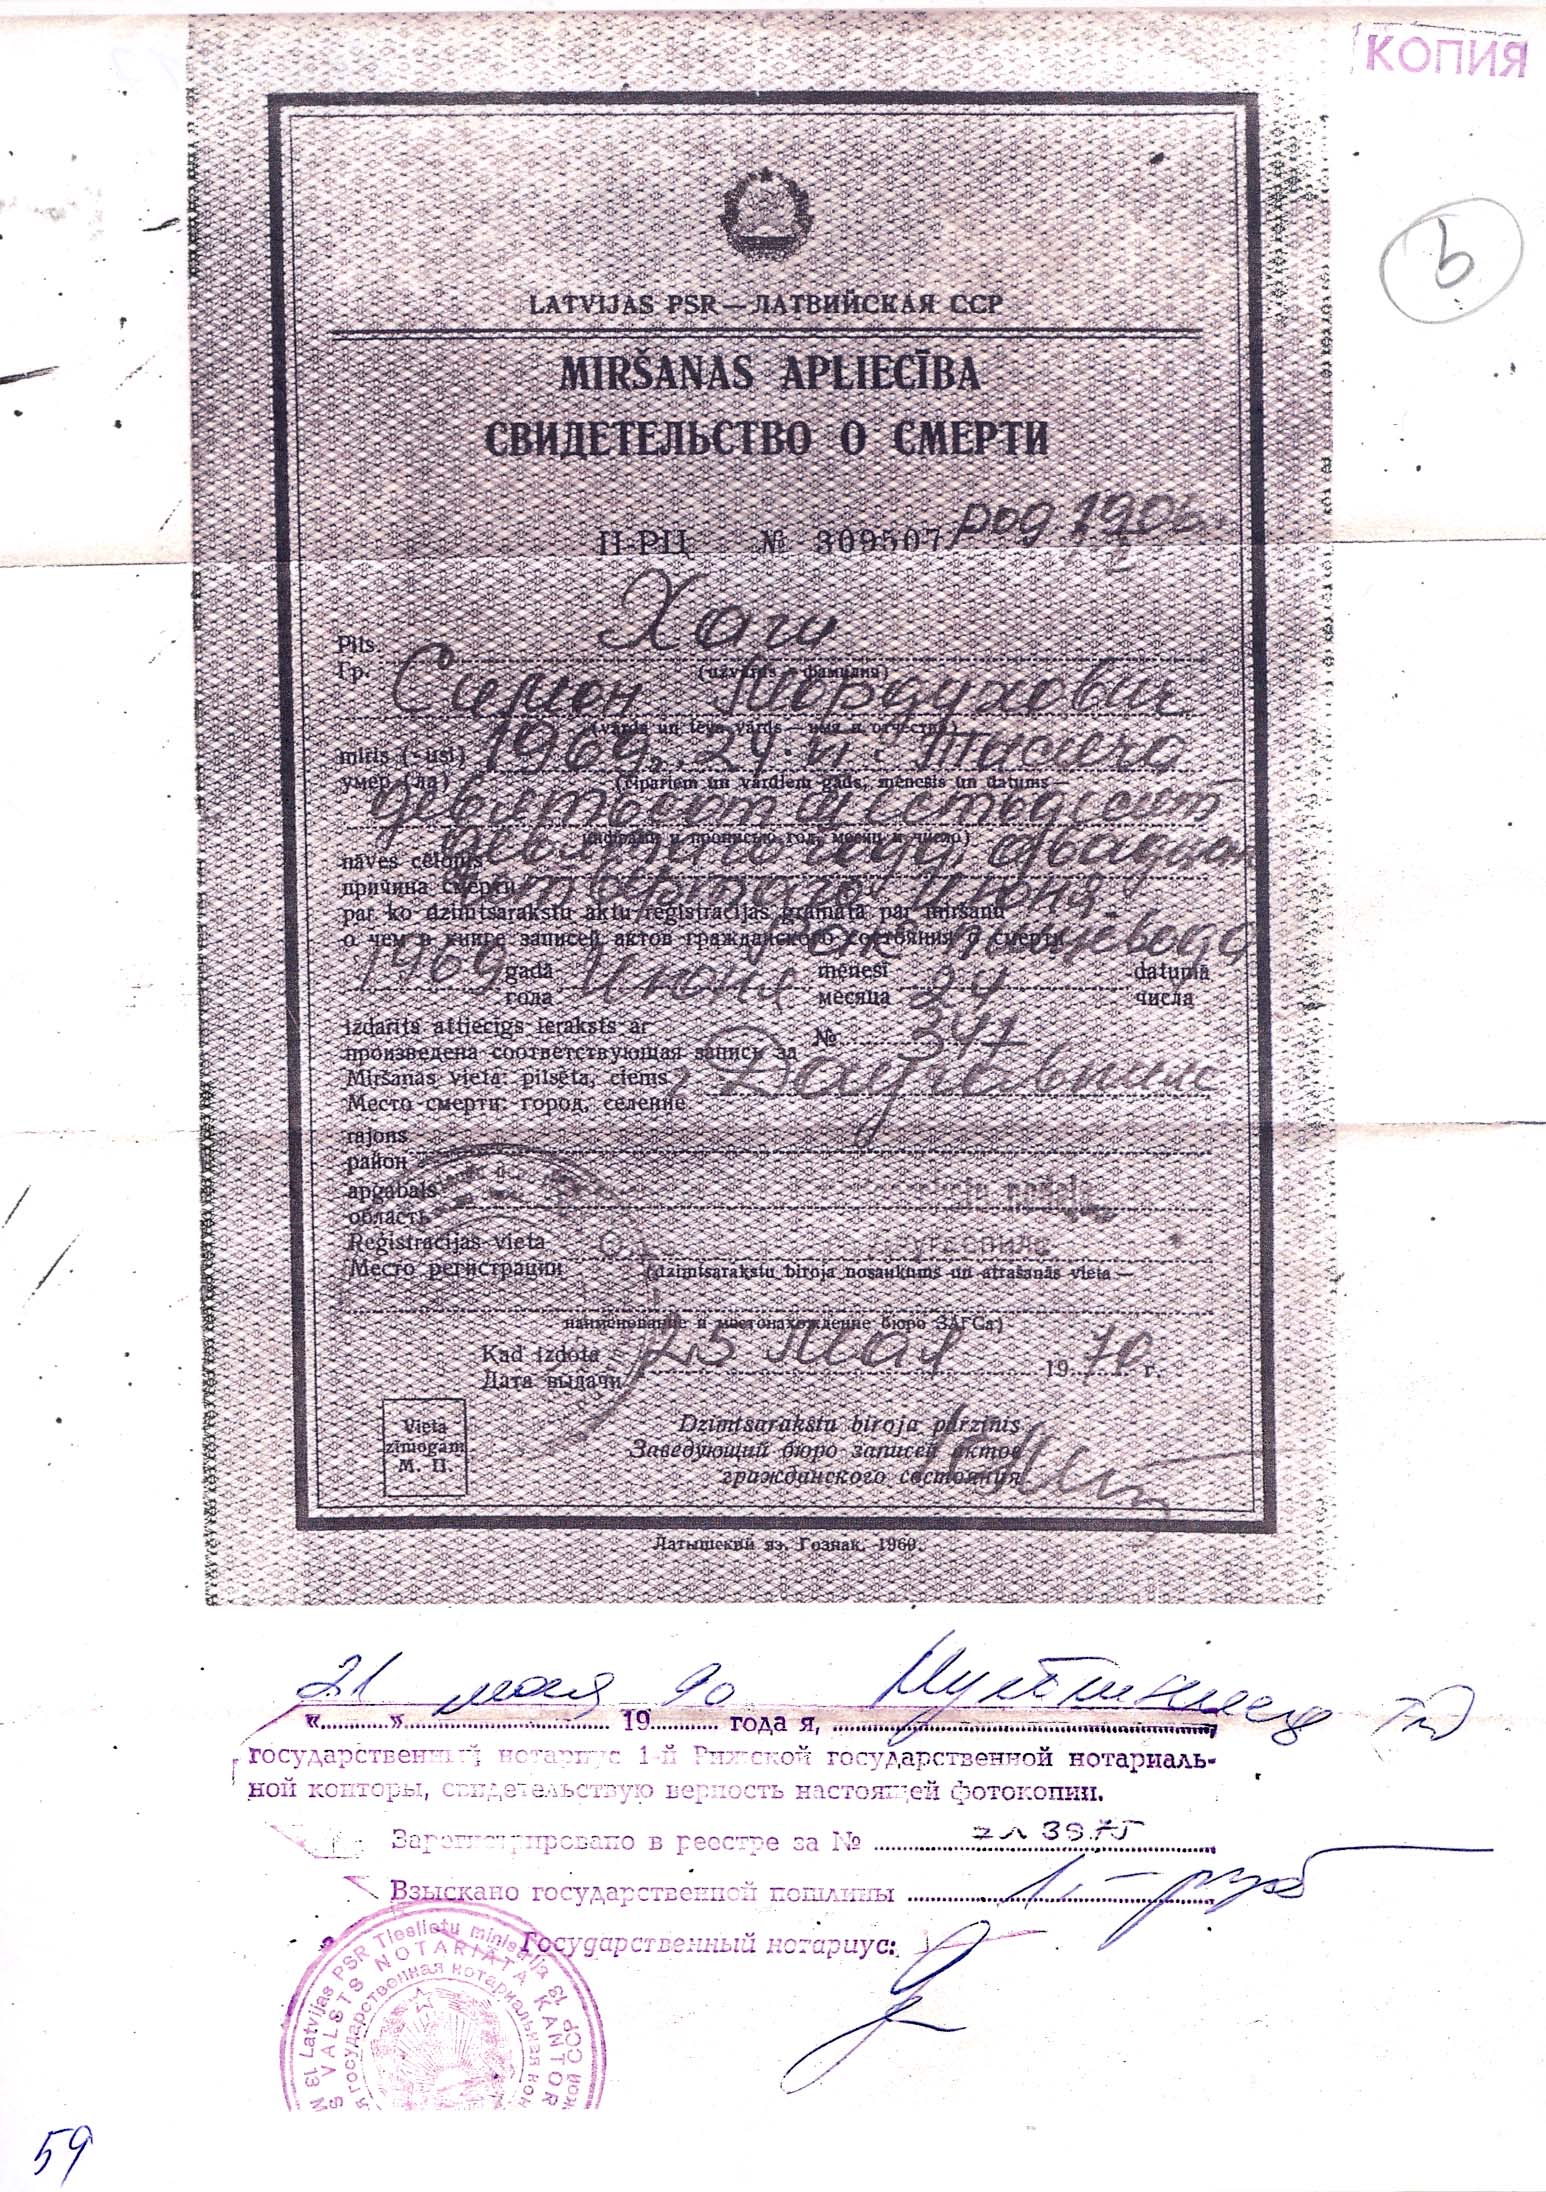 КОПИЯ
b
LATVIJAS PSR — ЛАТВИЙСКАЯ ССР
MIRŠANAS APLIECĪBA
СВИДЕТЕЛЬСТВО О СМЕРТИ
II-РЦ № 309507 род 1906.
Хаги
Pils.
Гр.
(uzvārds — фамилия)
Симон Мордухович
(vārds un tēva vārds — имя и отчество)
miris (-usi)
умер (ла)
1969. 24. VI. Тысяча
(cipariem un vārdiem gads, mēnesis un datums —
девятьсот шестьдесят
цифрами и прописью год, месяц и число)
девятого года, двадцать
nāves cēlonis
причина смерти
четвертого июня
par ko dzimtsarakstu aktu reģistrācijas grāmatā par miršanu
о чем в книге записей актов гражданского состояния о смерти
Рак пищевода
1969 gadā Июня mēnesī 24 datumā
года месяца числа
izdarīts attiecīgs ieraksts ar
произведена соответствующая запись за № 347
Miršanas vieta: pilsēta, ciems
Место смерти: город, селение
г Даугавпилс
rajons
район
apgabals
область
nodaļa
Reģistrācijas vieta
Место регистрации
(dzimtsarakstu biroja nosaukums un atrašanās vieta —
наименование и местонахождение бюро ЗАГСа)
Kad izdota
Дата выдачи
25 Мая 1970 г.
Vieta
zīmogam
М. П.
Dzimtsarakstu biroja pārzinis
Заведующий бюро записей актов
гражданского состояния
Латышский яз. Гознак. 1960.
« 21 » мая 1990 года я,
государственный нотариус 1-й Рижской государственной нотариаль-
ной конторы, свидетельствую верность настоящей фотокопии.
Зарегистрировано в реестре за № 2л 3975
Взыскано государственной пошлины 1,- руб
Государственный нотариус:
Latvijas PSR Tieslietu ministrija
VALSTS NOTARIĀTA KANTOR
государственная нотариальная кон
59